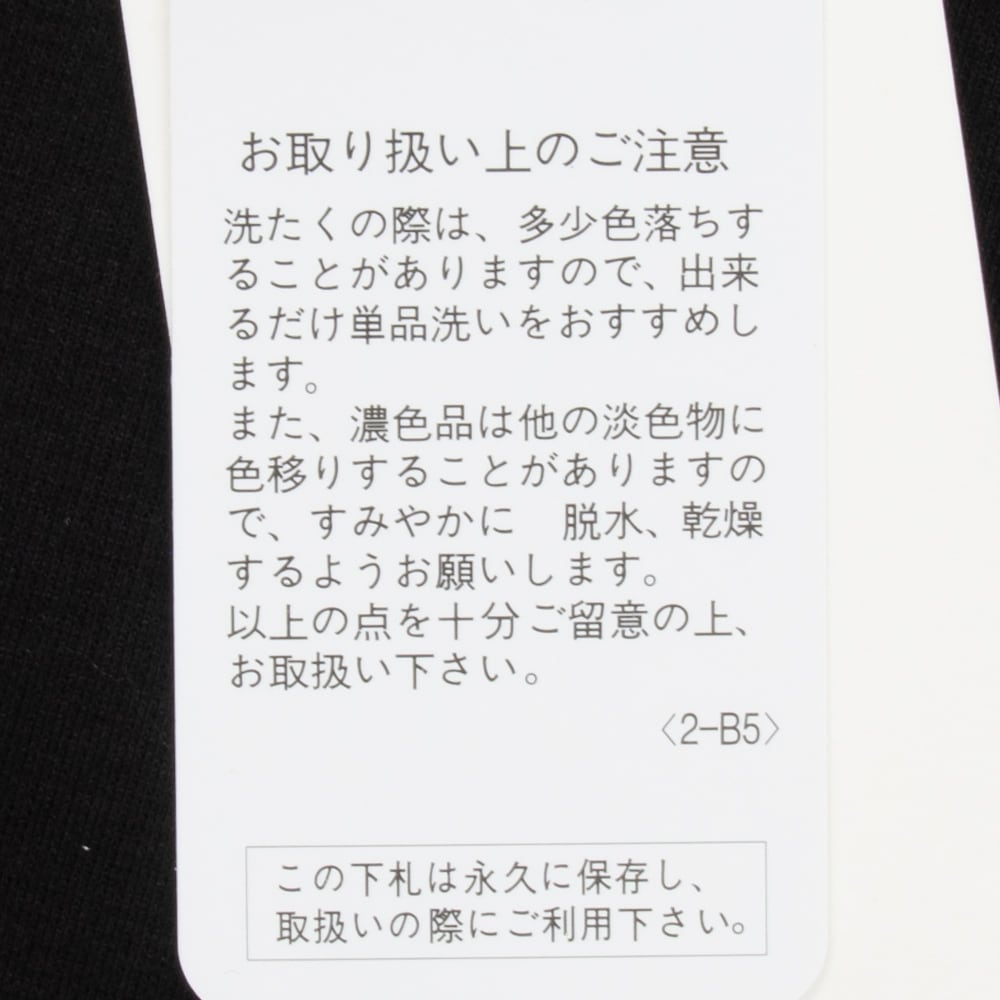 お取り扱い上のご注意
洗たくの際は、多少色落ちす
ることがありますので、出来
るだけ単品洗いをおすすめし
ます。
また、濃色品は他の淡色物に
色移りすることがありますの
で、すみやかに　脱水、乾燥
するようお願いします。
以上の点を十分ご留意の上、
お取扱い下さい。
〈2-B5〉
この下札は永久に保存し、
取扱いの際にご利用下さい。